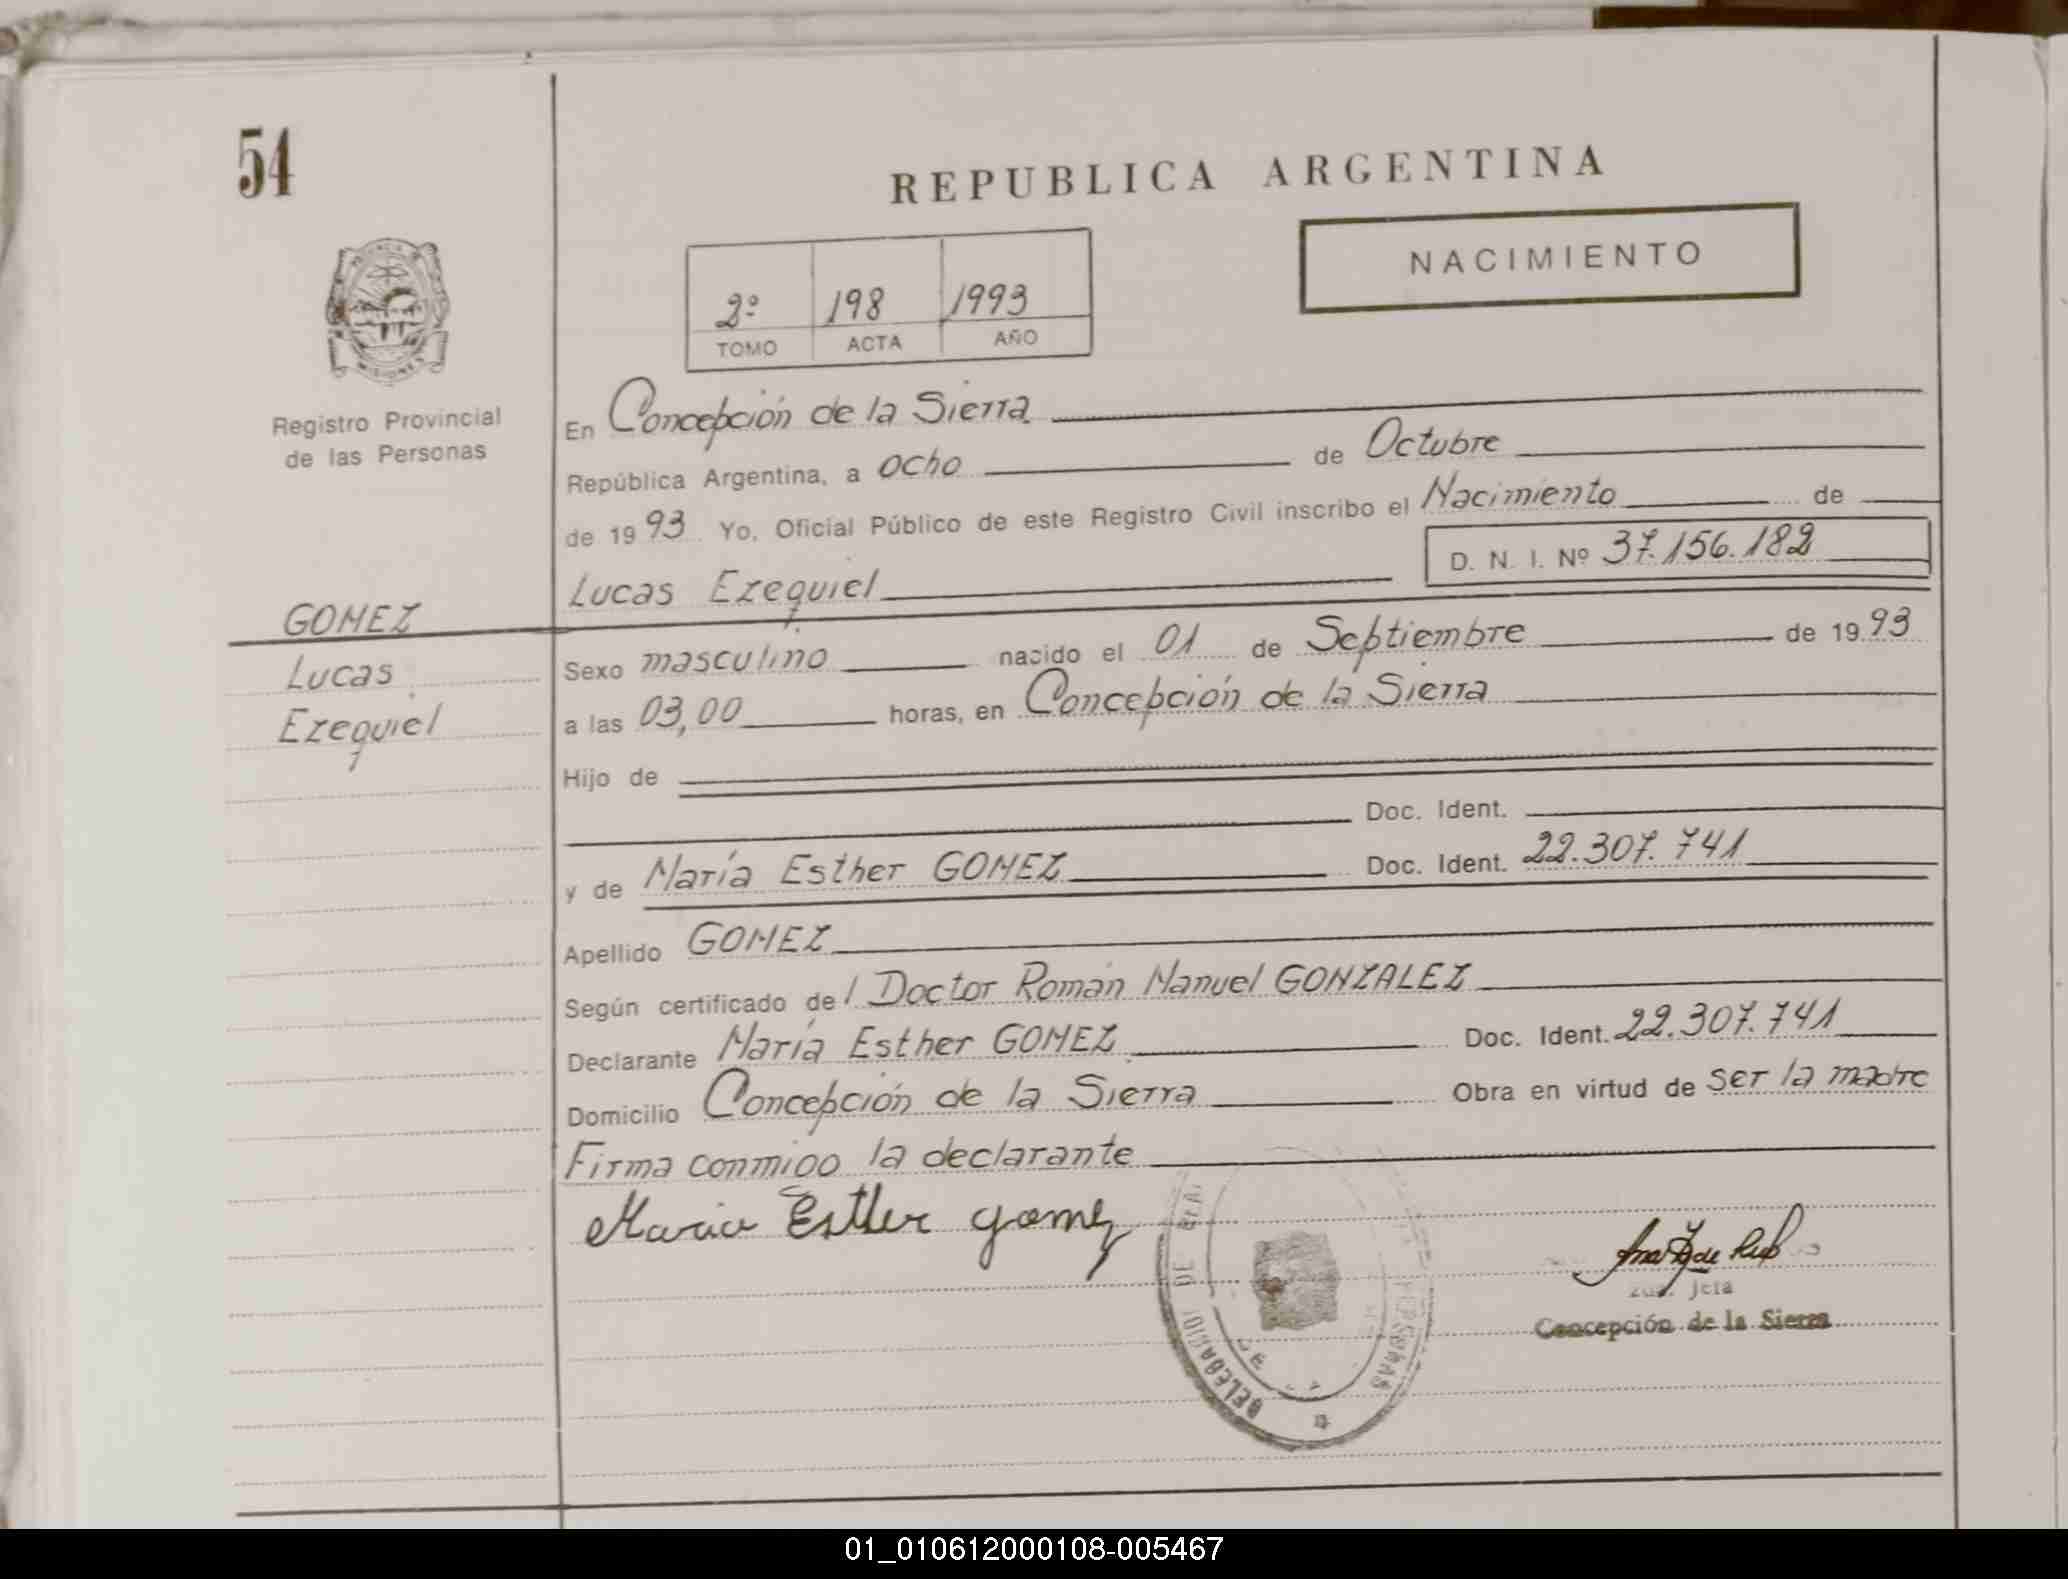 54
REPUBLICA ARGENTINA
NACIMIENTO
2º 198 1993
TOMO ACTA AÑO
PROVINCIA DE
MISIONES
Registro Provincial
de las Personas
En Concepción de la Sierra
República Argentina, a ocho de Octubre
de 1993 Yo, Oficial Público de este Registro Civil inscribo el Nacimiento de
D. N. I. Nº 37.156.182
Lucas Ezequiel
GOMEZ
Lucas
Ezequiel
Sexo masculino nacido el 01 de Septiembre de 1993
a las 03,00 horas, en Concepción de la Sierra
Hijo de
Doc. Ident.
y de María Esther GOMEZ Doc. Ident. 22.307.741
Apellido GOMEZ
Según certificado del Doctor Román Manuel GONZALEZ
Declarante María Esther GOMEZ Doc. Ident. 22.307.741
Domicilio Concepción de la Sierra Obra en virtud de ser la madre
Firma conmigo la declarante
Maria Esther gomez
DE
Concepción de la Sierra
01_010612000108-005467